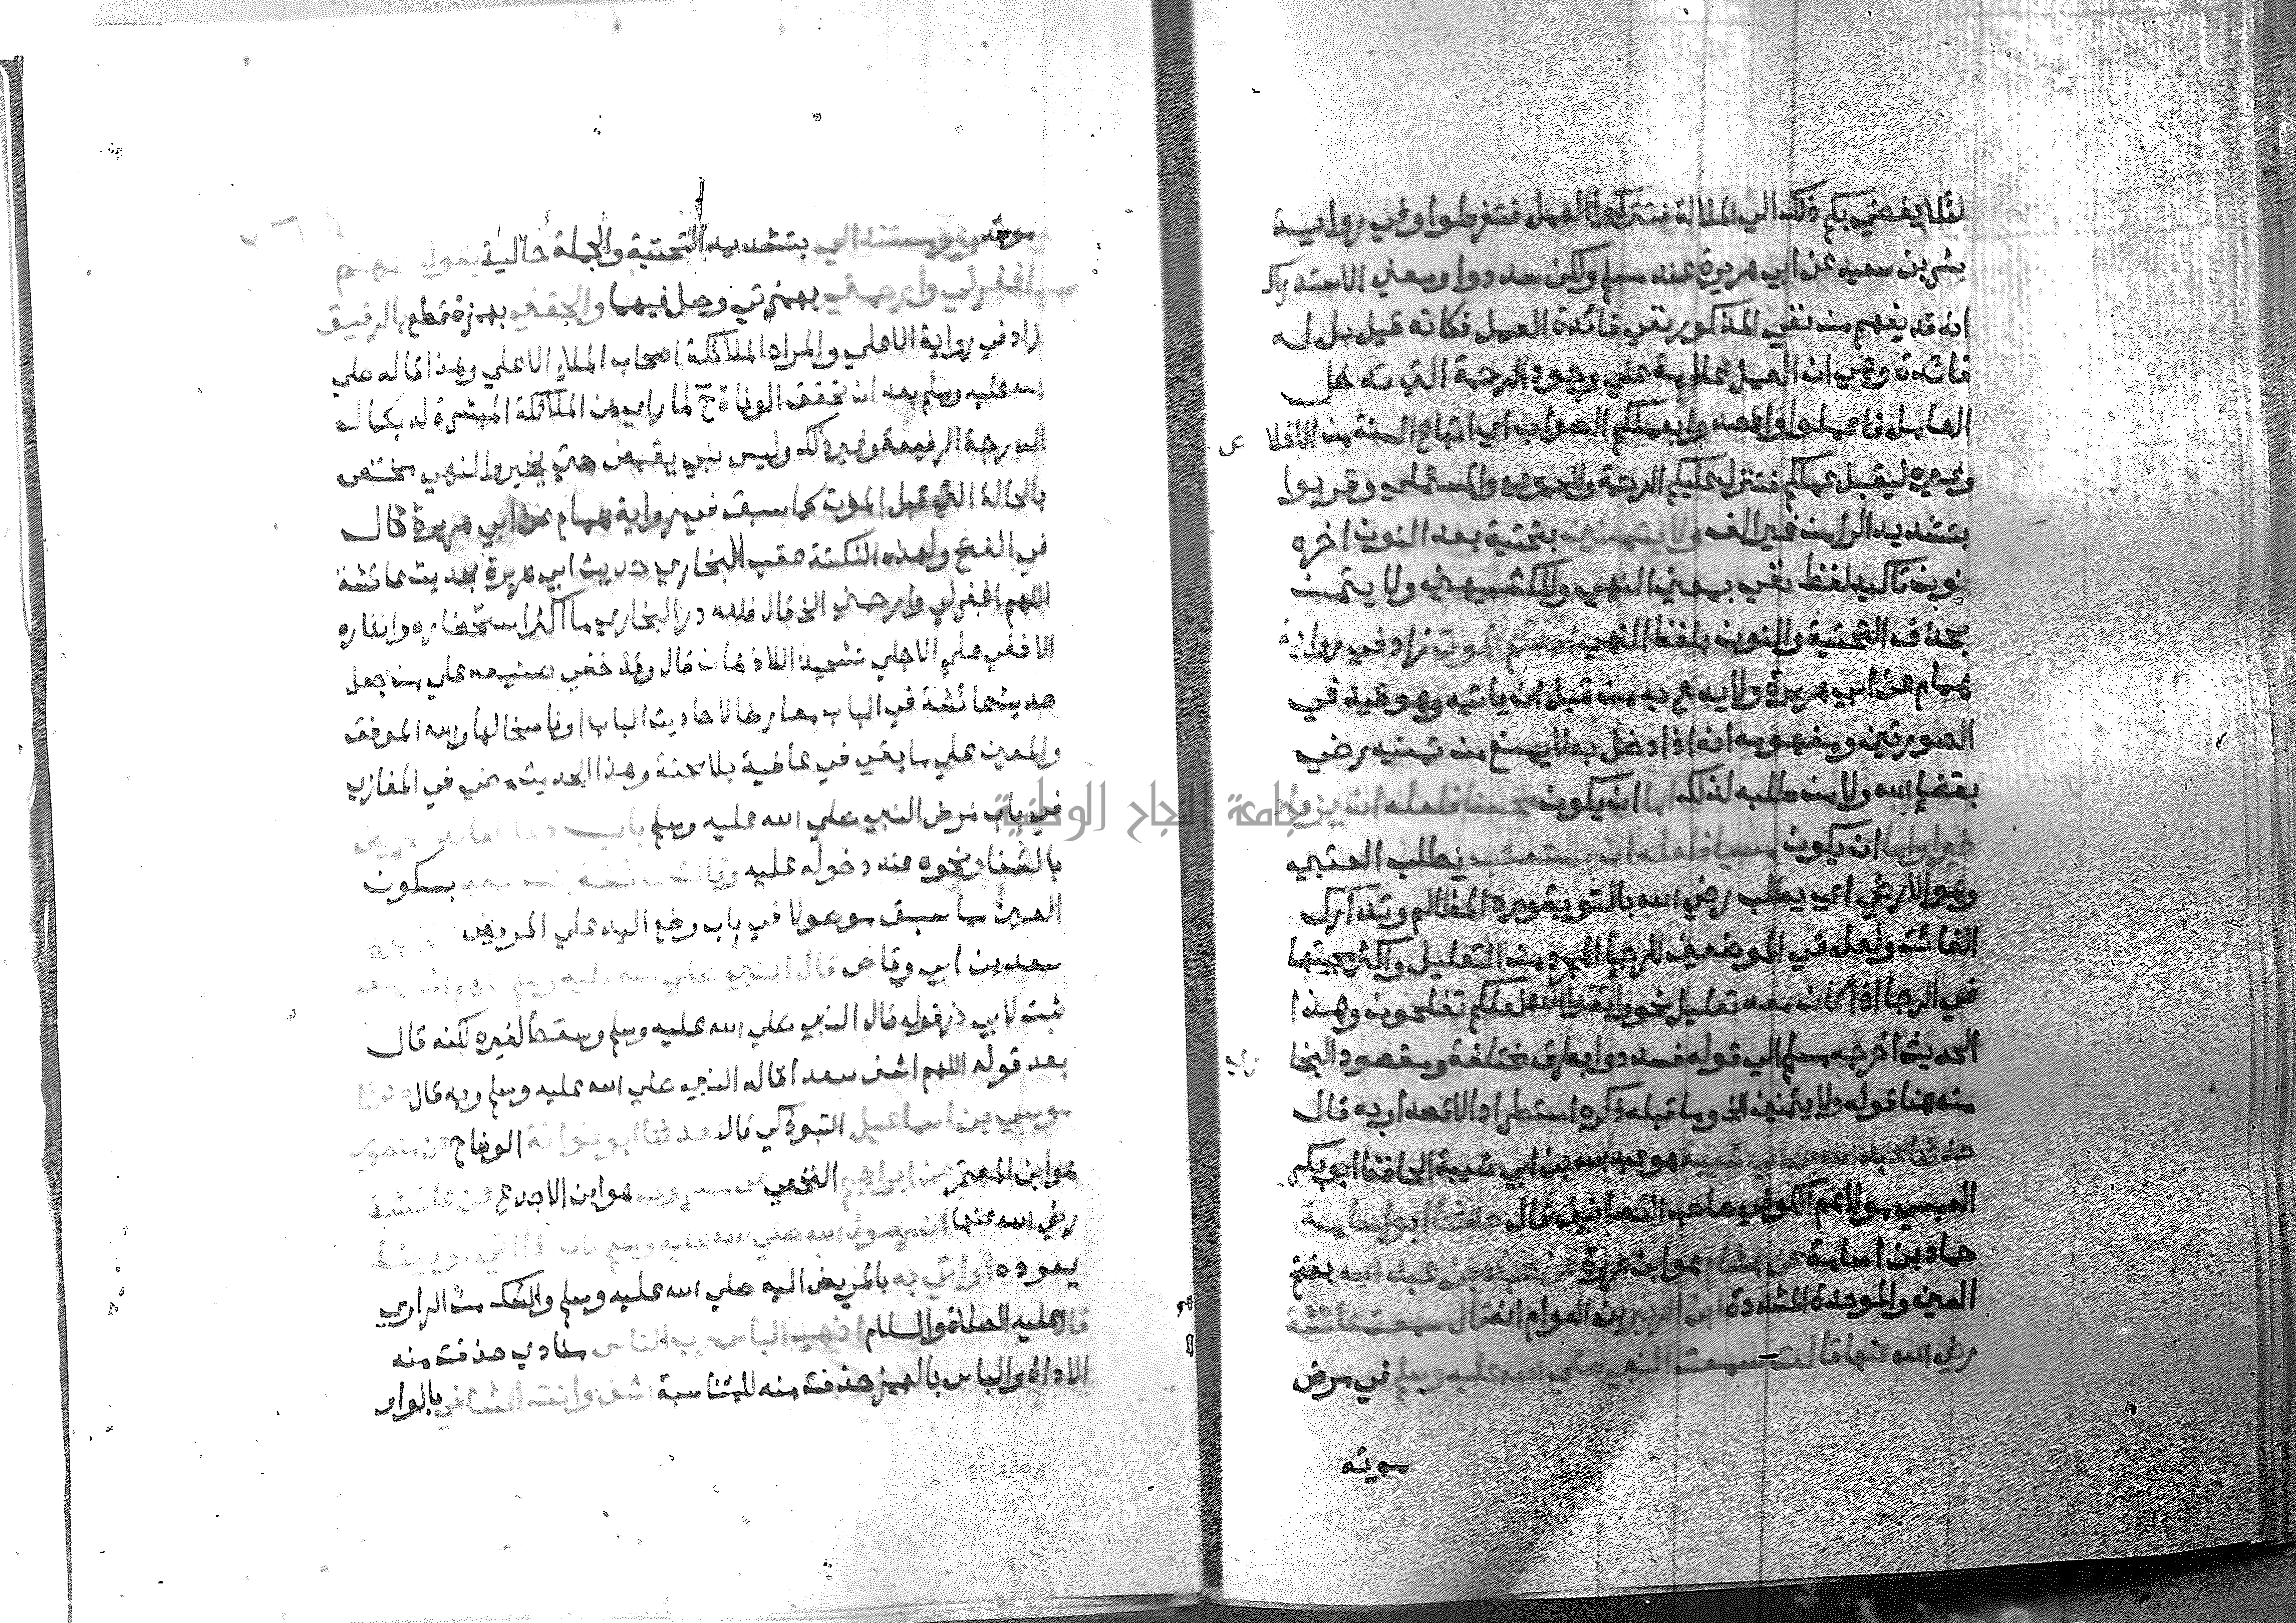 لئلا يفضي بكم ذلك الي الملالة فتتركوا العمل فتفرطوا وفي رواية
بشر بن سعيد عن ابي هريرة عند مسلم ولكن سددوا ومعني الاستدراك
انه قد يفهم من نفي المذكور نفي فائدة العمل فكانه قيل بل له
فائدة وهي ان العمل علامة علي وجود الرحمة التي تدخل
العامل فاعملوا واقصدوا بعملكم الصواب اي اتباع السنة من الاخلاص
وغيره ليقبل عملكم فتنزل عليكم الرحمة وللحموي والمستملي وقربوا
بتشديد الرا من غير الف ولا يتمنين بتحتية بعد النون اخره
نون تاكيد لفظ نفي بمعني النهي وللكشميهني ولا يتمن
بحذف التحتية والنون بلفظ النهي احدكم الموت زاد في رواية
همام عن ابي هريرة ولا يدع به من قبل ان ياتيه وهو قيد في
الصورتين ومفهومه انه اذا دخل به لا يمنع من تمنيه رضي
بقضاء الله ولا من طلبه لذلك اما ان يكون محسنا فلعله ان يزداد
خيرا واما ان يكون مسيا فلعله ان يستعتب يطلب العتبي
وهو الارضي اي يطلب رضي الله بالتوبة ورد المظالم وتدارك
الفائت ولعل في الموضعين للرجا المجرد من التعليل واكثر مجيئها
في الرجا اذا كان معه تعليل نحو واتقوا الله لعلكم تفلحون وهذا
الحديث اخرجه مسلم الي قوله فسددوا بطرق مختلفة ومقصود البخاري
منه هنا قوله ولا يتمنين الخ وما قبله ذكره استطرادا لا قصدا وبه قال
حدثنا عبد الله بن ابي شيبة هو عبد الله بن ابي شيبة الحافظ ابو بكر
العبسي مولاهم الكوفي صاحب التصانيف قال حدثنا ابو اسامة
حماد بن اسامة عن هشام هو ابن عروة عن عباد بن عبد الله بفتح
العين والموحدة المشددة ابن الزبير بن العوام انه قال سمعت عائشة
رضي الله عنها قالت سمعت النبي صلي الله عليه وسلم في مرض
موته
موته وهو مستند الي بتشديد التحتية والجملة حالية
اغفر لي وارحمني بهمزتي وصل فيهما والحقني بهمزة قطع بالرفيق
زاد في رواية الاعلي والمراد الملائكة اصحاب الملاء الاعلي وهذا قاله صلي
الله عليه وسلم بعد ان تحقق الوفاة ح لما راي من الملائكة المبشرة له بكمال
الدرجة الرفيعة وغير ذلك وليس نبي يقبض حتي يخير والنهي مختص
بالحالة التي قبل الموت كما سبق في رواية همام عن ابي هريرة قال
في الفتح ولهذه النكتة عقب البخاري حديث ابي هريرة بحديث عائشة
اللهم اغفر لي وارحمني الخ قال فلله در البخاري ما اكثر استحضاره وايثاره
الاخفي علي الاجلي تشحيذا للاذهان قال وقد خفي صنيعه علي من جعل
حديث عائشة في الباب معارضا لاحاديث الباب او ناسخا لها والله الموفق
والمعين علي ما بقي في عافية بلا محنة وهذا الحديث مضي في المغازي
في باب مرض النبي صلي الله عليه وسلم
بالشفا ونحوه عند دخوله عليه وقالت بسكون
العين مما سبق موصولا في باب وضع اليد علي المريض
سعد بن ابي وقاص قال
ثبت لابي ذر قوله قال النبي صلي الله عليه وسلم وسقط لغيره لكنه قال
بعد قوله اللهم اشف سعدا قاله النبي صلي الله عليه وسلم وبه قال
موسي بن اسماعيل التبوذكي قال الوضاح
هو ابن المعتمر النخعي هو ابن الاجدع
رضي الله عنها ان رسول الله صلي الله عليه وسلم
يعوده او اتي به بالمريض اليه صلي الله عليه وسلم والشك من الراوي
قال عليه الصلاة والسلام منادي حذفت منه
الاداة والباس بالهمز حذفت منه للمناسبة بالواو
جامعة النجاح الوطنية